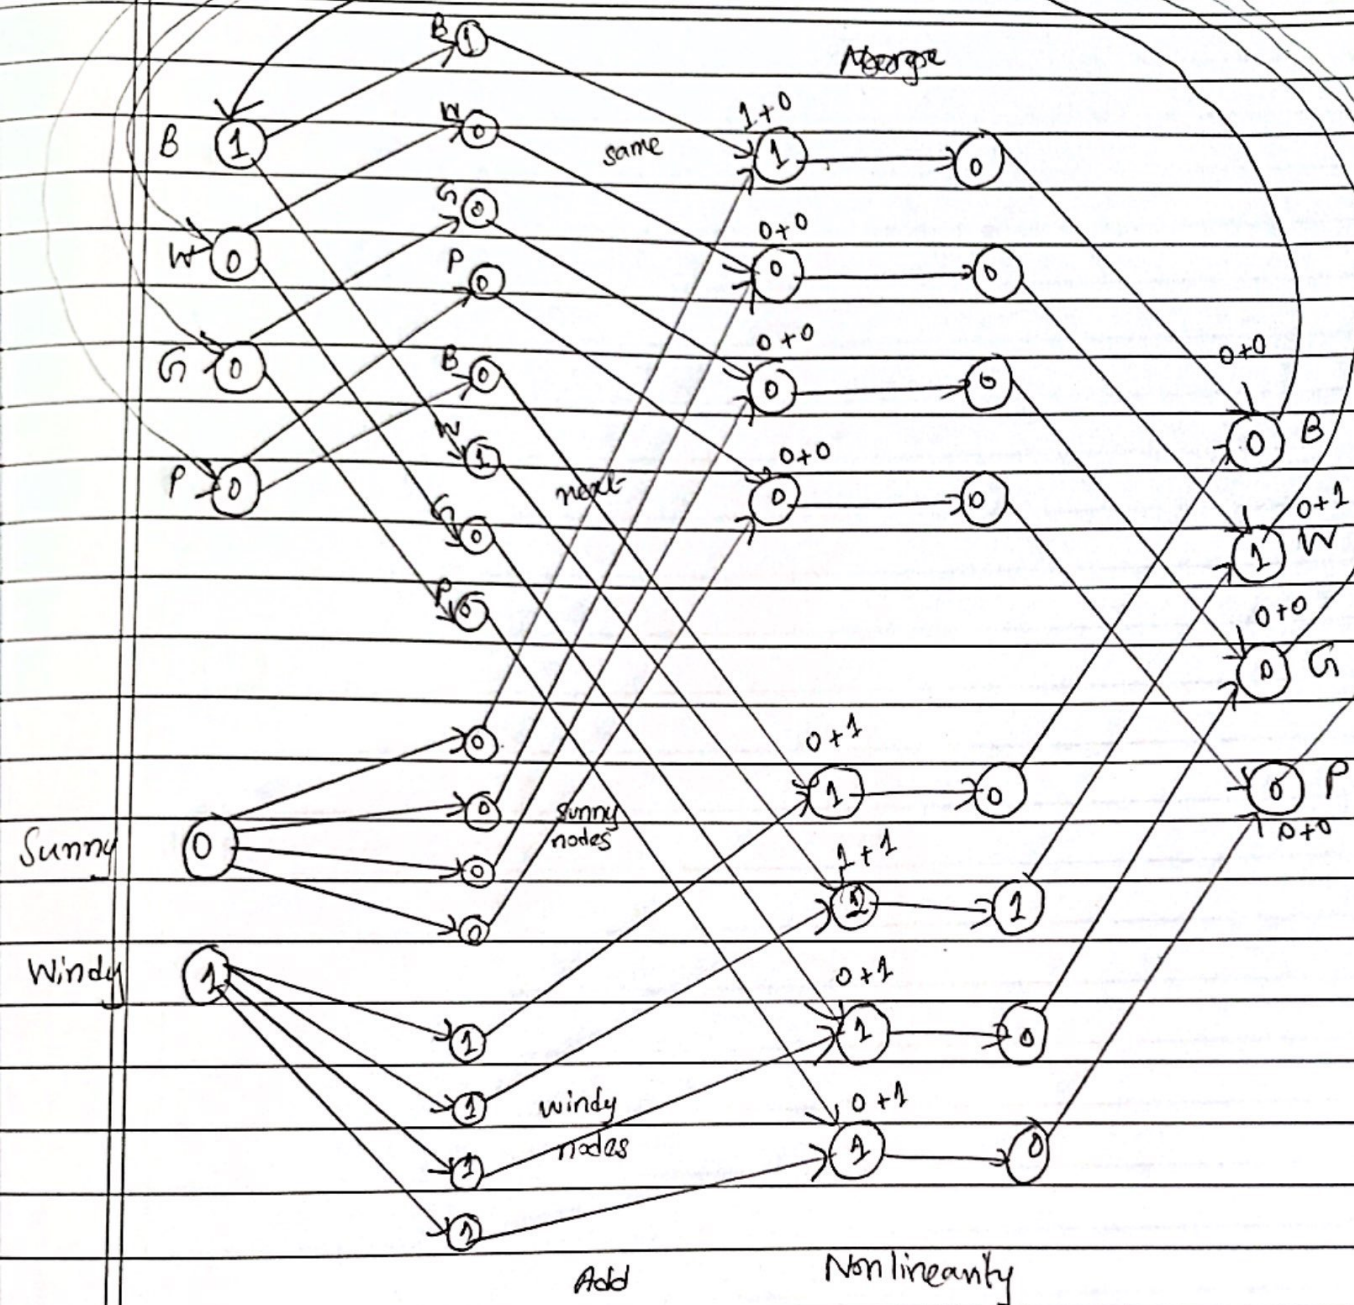 B 1
W 0
G 0
P 0
B 0
W 1
G 0
P 0
B 1
W 0
G 0
P 0
same
next
1+0
1 0
0+0
0 0
0+0
0 0
0+0
0 0
0+0
0 B
0+1
1 W
0+0
0 G
0 P
0+0
Sunny 0
0
0
0
0
sunny
nodes
Windy 1
1
1
1
1
windy
nodes
0+1
1 0
1+1
2 1
0+1
1 0
0+1
1 0
Add
Nonlinearity